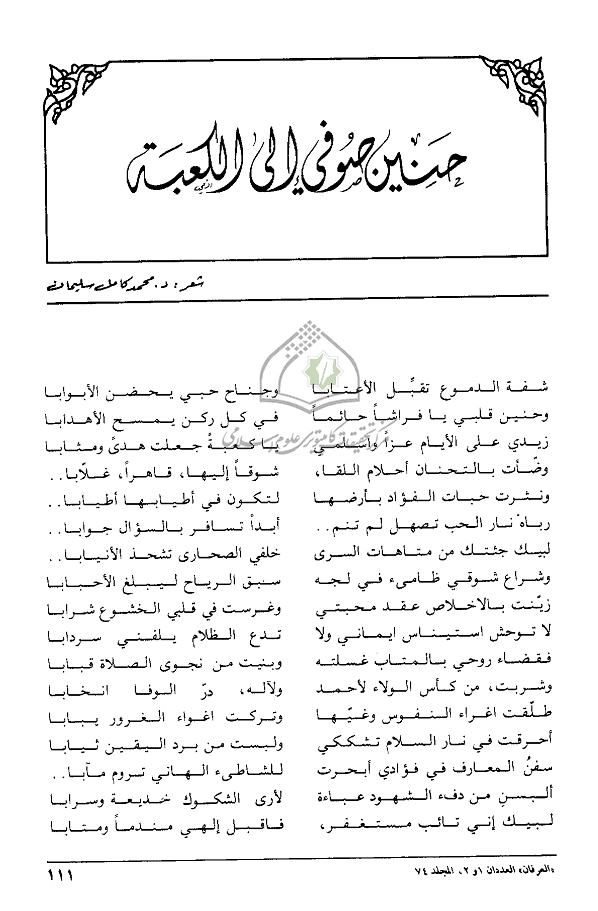 حنين صوفي إلى الكعبة
شعر: د. محمد كامل سليمان
شفة الدموع تقبّل الأعتابا وجناح حبي يحضن الأبوابا
وحنين قلبي يا فراشاً حائماً في كل ركن يمسح الأهدابا
زيدي على الأيام عزاً واسلمي يا كعبةً جعلت هدىً ومثابا
وضّأت بالتحنان أحلام اللقا، شوقاً إليها، قاهراً، غلّابا..
ونشرت حبات الفؤاد بأرضها لتكون في أطيابها أطيابا..
رباه نار الحب تصهل لم تنم.. أبداً تسافر بالسؤال جوابا..
لبيك جئتك من متاهات السرى خلفي الصحارى تشحذ الأنيابا..
وشراع شوقي ظامىء في لجه سبق الرياح ليبلغ الأحبابا
زيّنت بالاخلاص عقد محبتي وغرست في قلبي الخشوع شرابا
لا توحش استيناس ايماني ولا تدع الظلام يلفني سردابا
ففضاء روحي بالمتاب غسلته وبنيت من نجوى الصلاة قبابا
وشربت، من كأس الولاء لأحمد ولآله، درّ الوفا انخابا
طلّقت اغراء النفوس وغيّها وتركت اغواء الغرور يبابا
أحرقت في نار السلام تشككي ولبست من برد اليقين ثيابا
سفنُ المعارف في فؤادي أبحرت للشاطىء الهاني تروم مآبا..
ألبسن من دفء الشهود عباءة لأرى الشكوك خديعة وسرابا
لبيك إني تائب مستغفر، فاقبل إلهي مندماً ومتابا
«العرفان» العددان ١ و ٢، المجلد ٧٤
١١١